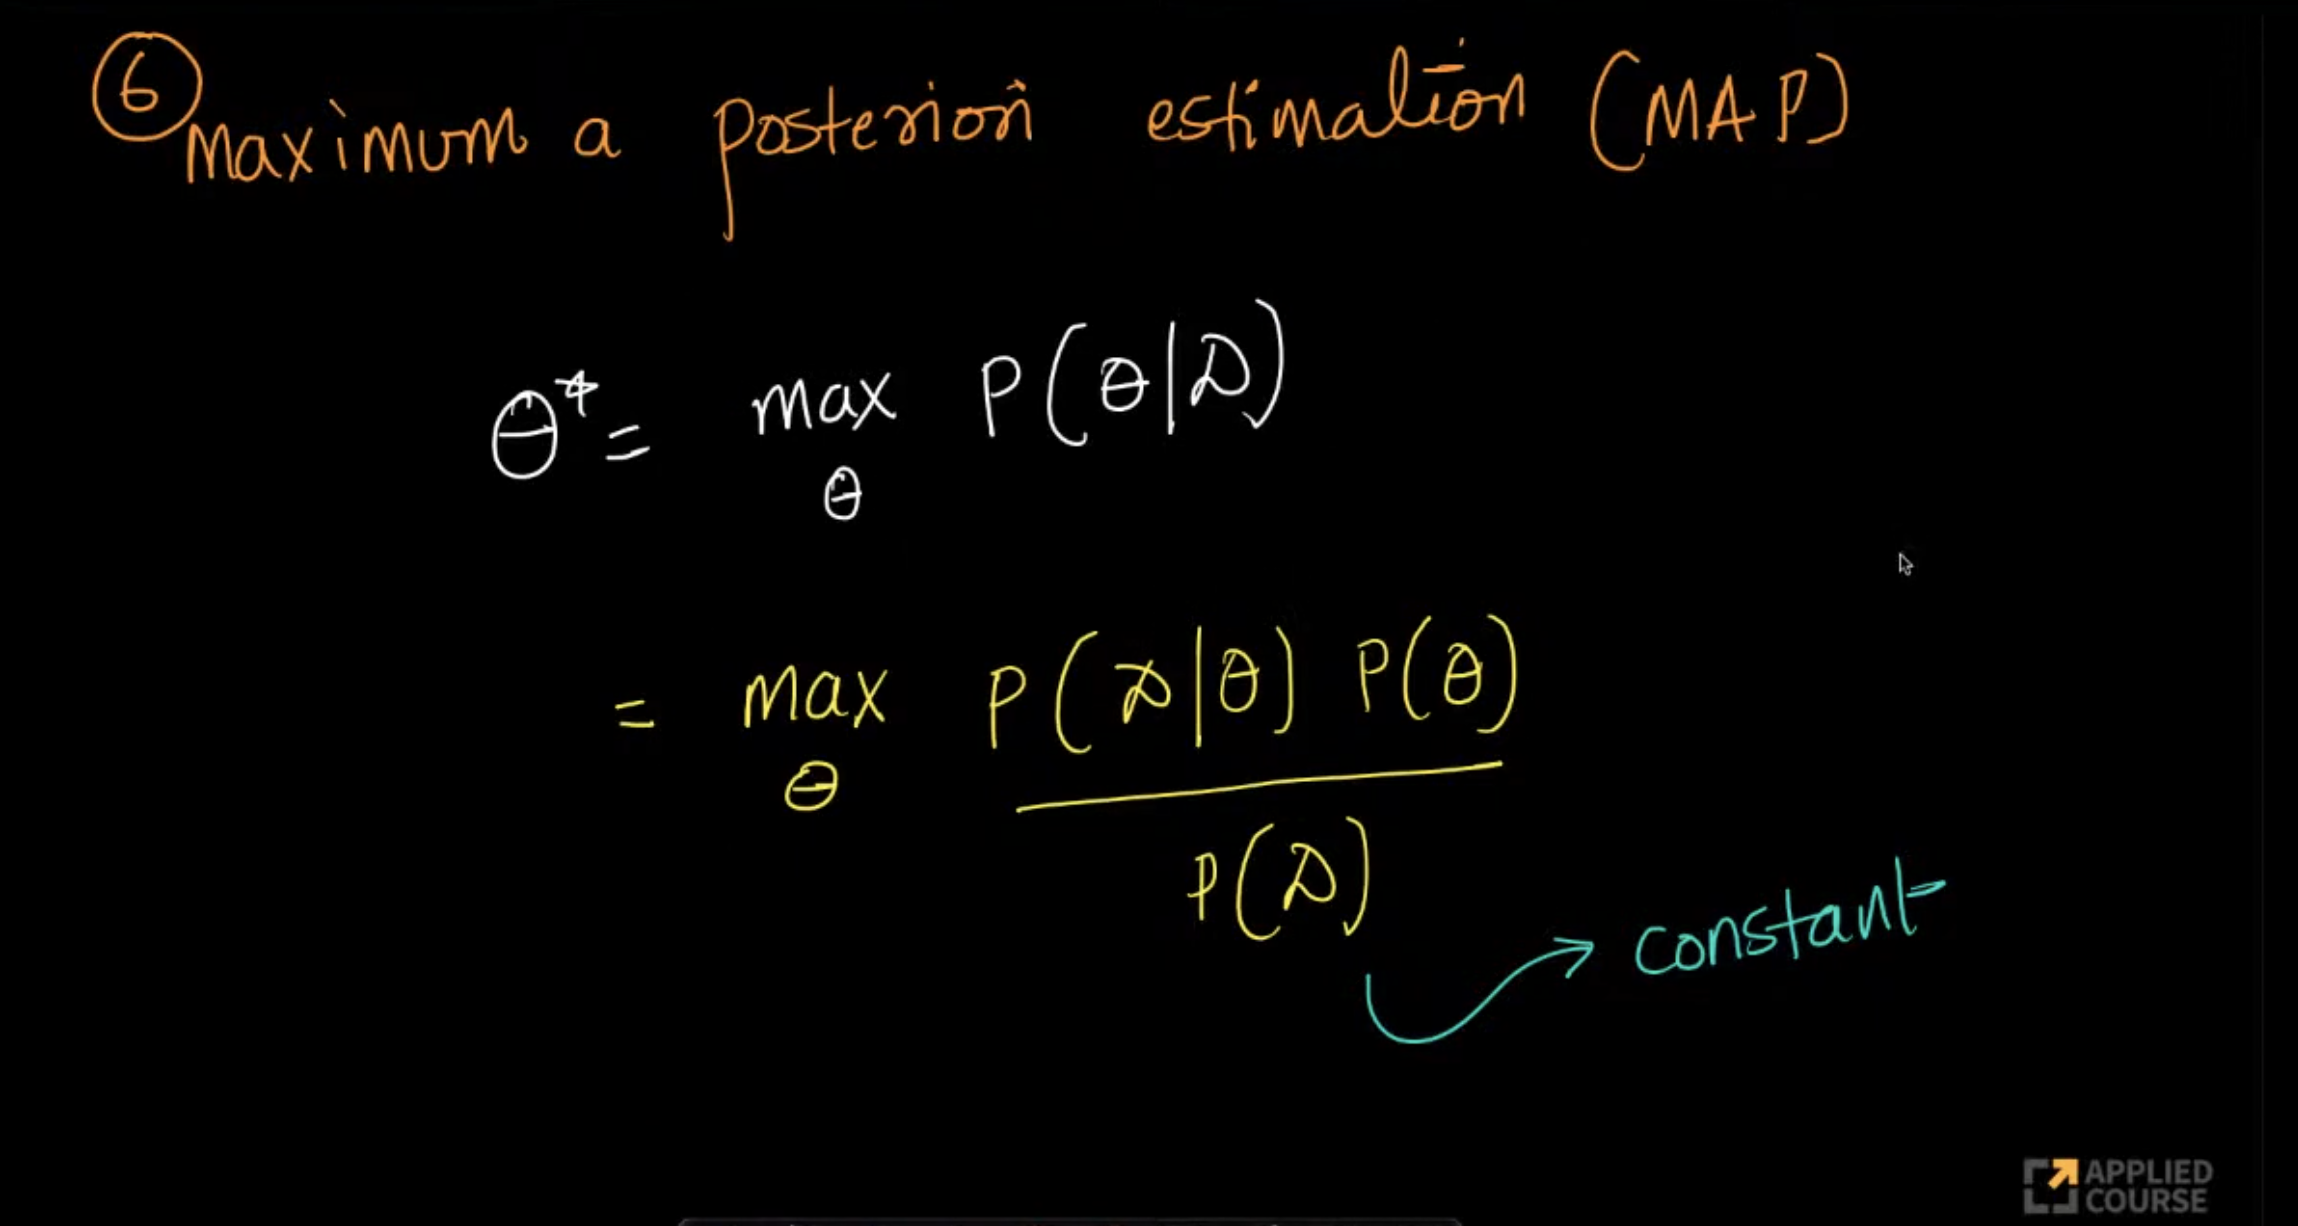 6
Maximum a posteriori estimation (MAP)
θ* = max P(θ|D)
θ
= max P(D|θ) P(θ)
θ
P(D)
constant
APPLIED
COURSE